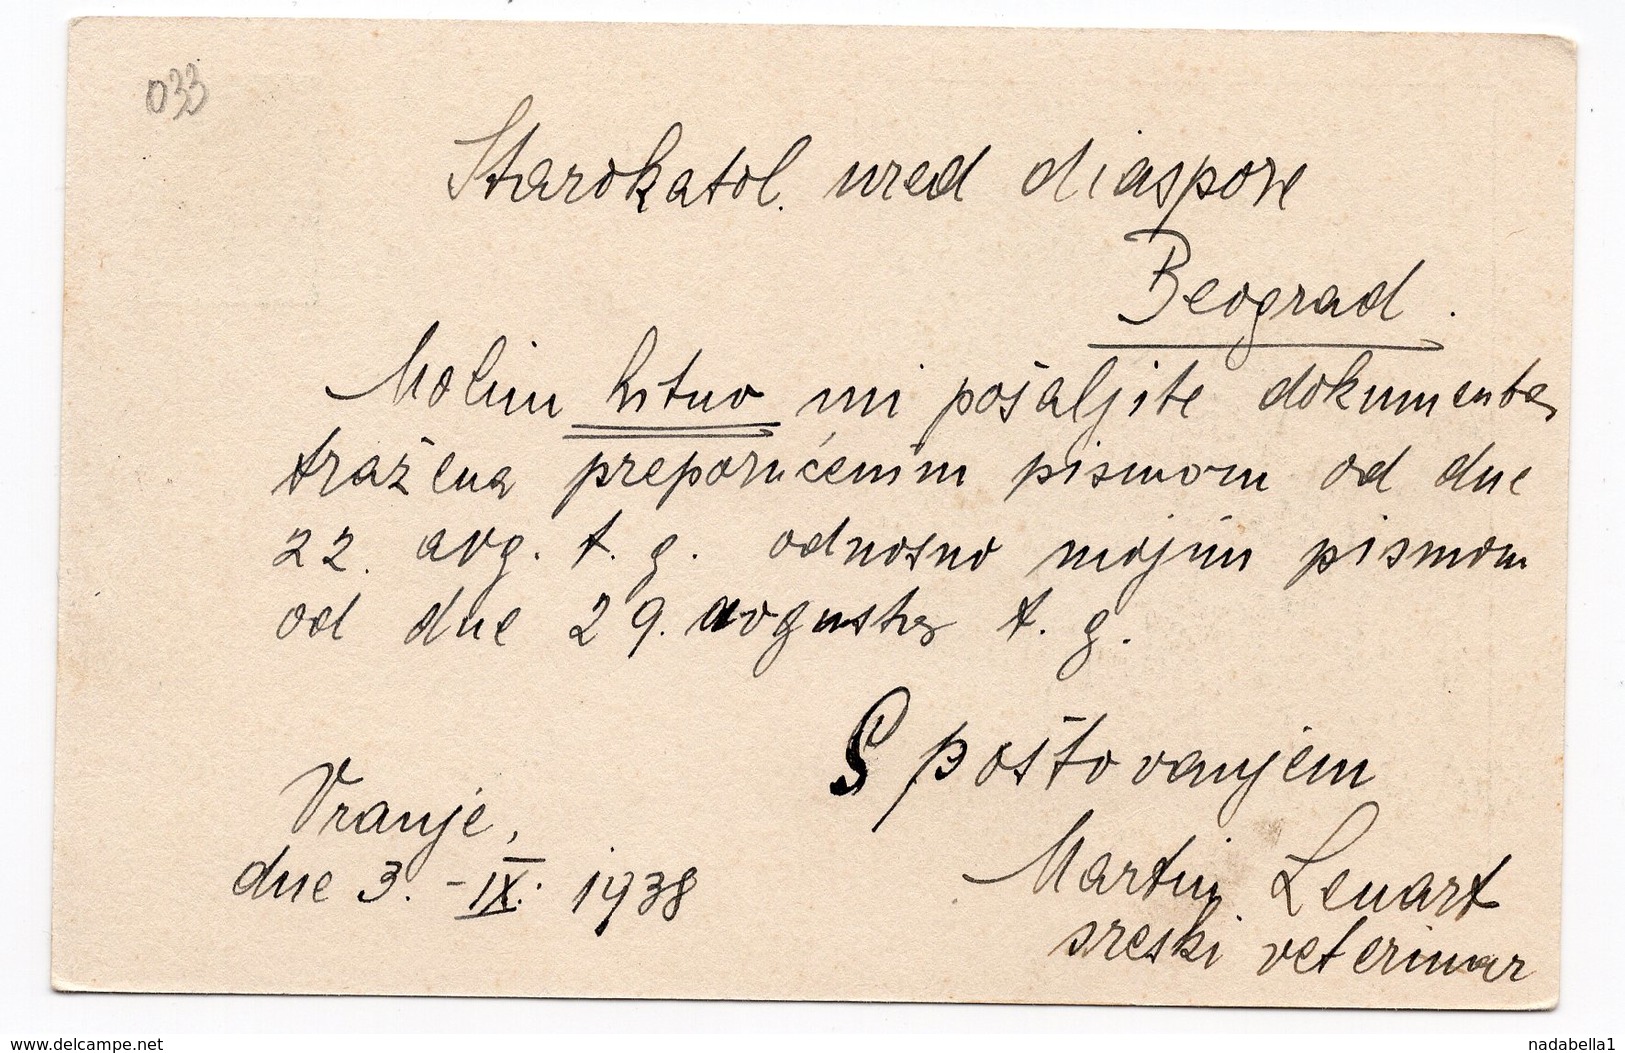 033
Starokatol. ured diaspore
Beograd.
Molim hitno mi pošaljite dokumenta
tražena preporučenim pismom od dne
22. avg. t. g. odnosno mojim pismom
od dne 29. avgusta t. g.
S poštovanjem
Vranje,
dne 3. - IX. 1938
Martin Lenart
sreski veterinar
www.delcampe.net
nadabella1